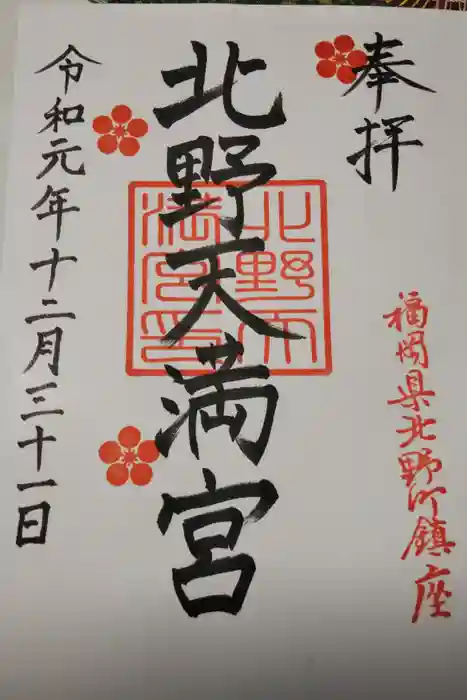 奉拝
福岡県北野町鎮座
北野天満宮
北野天満宮印
令和元年十二月三十一日